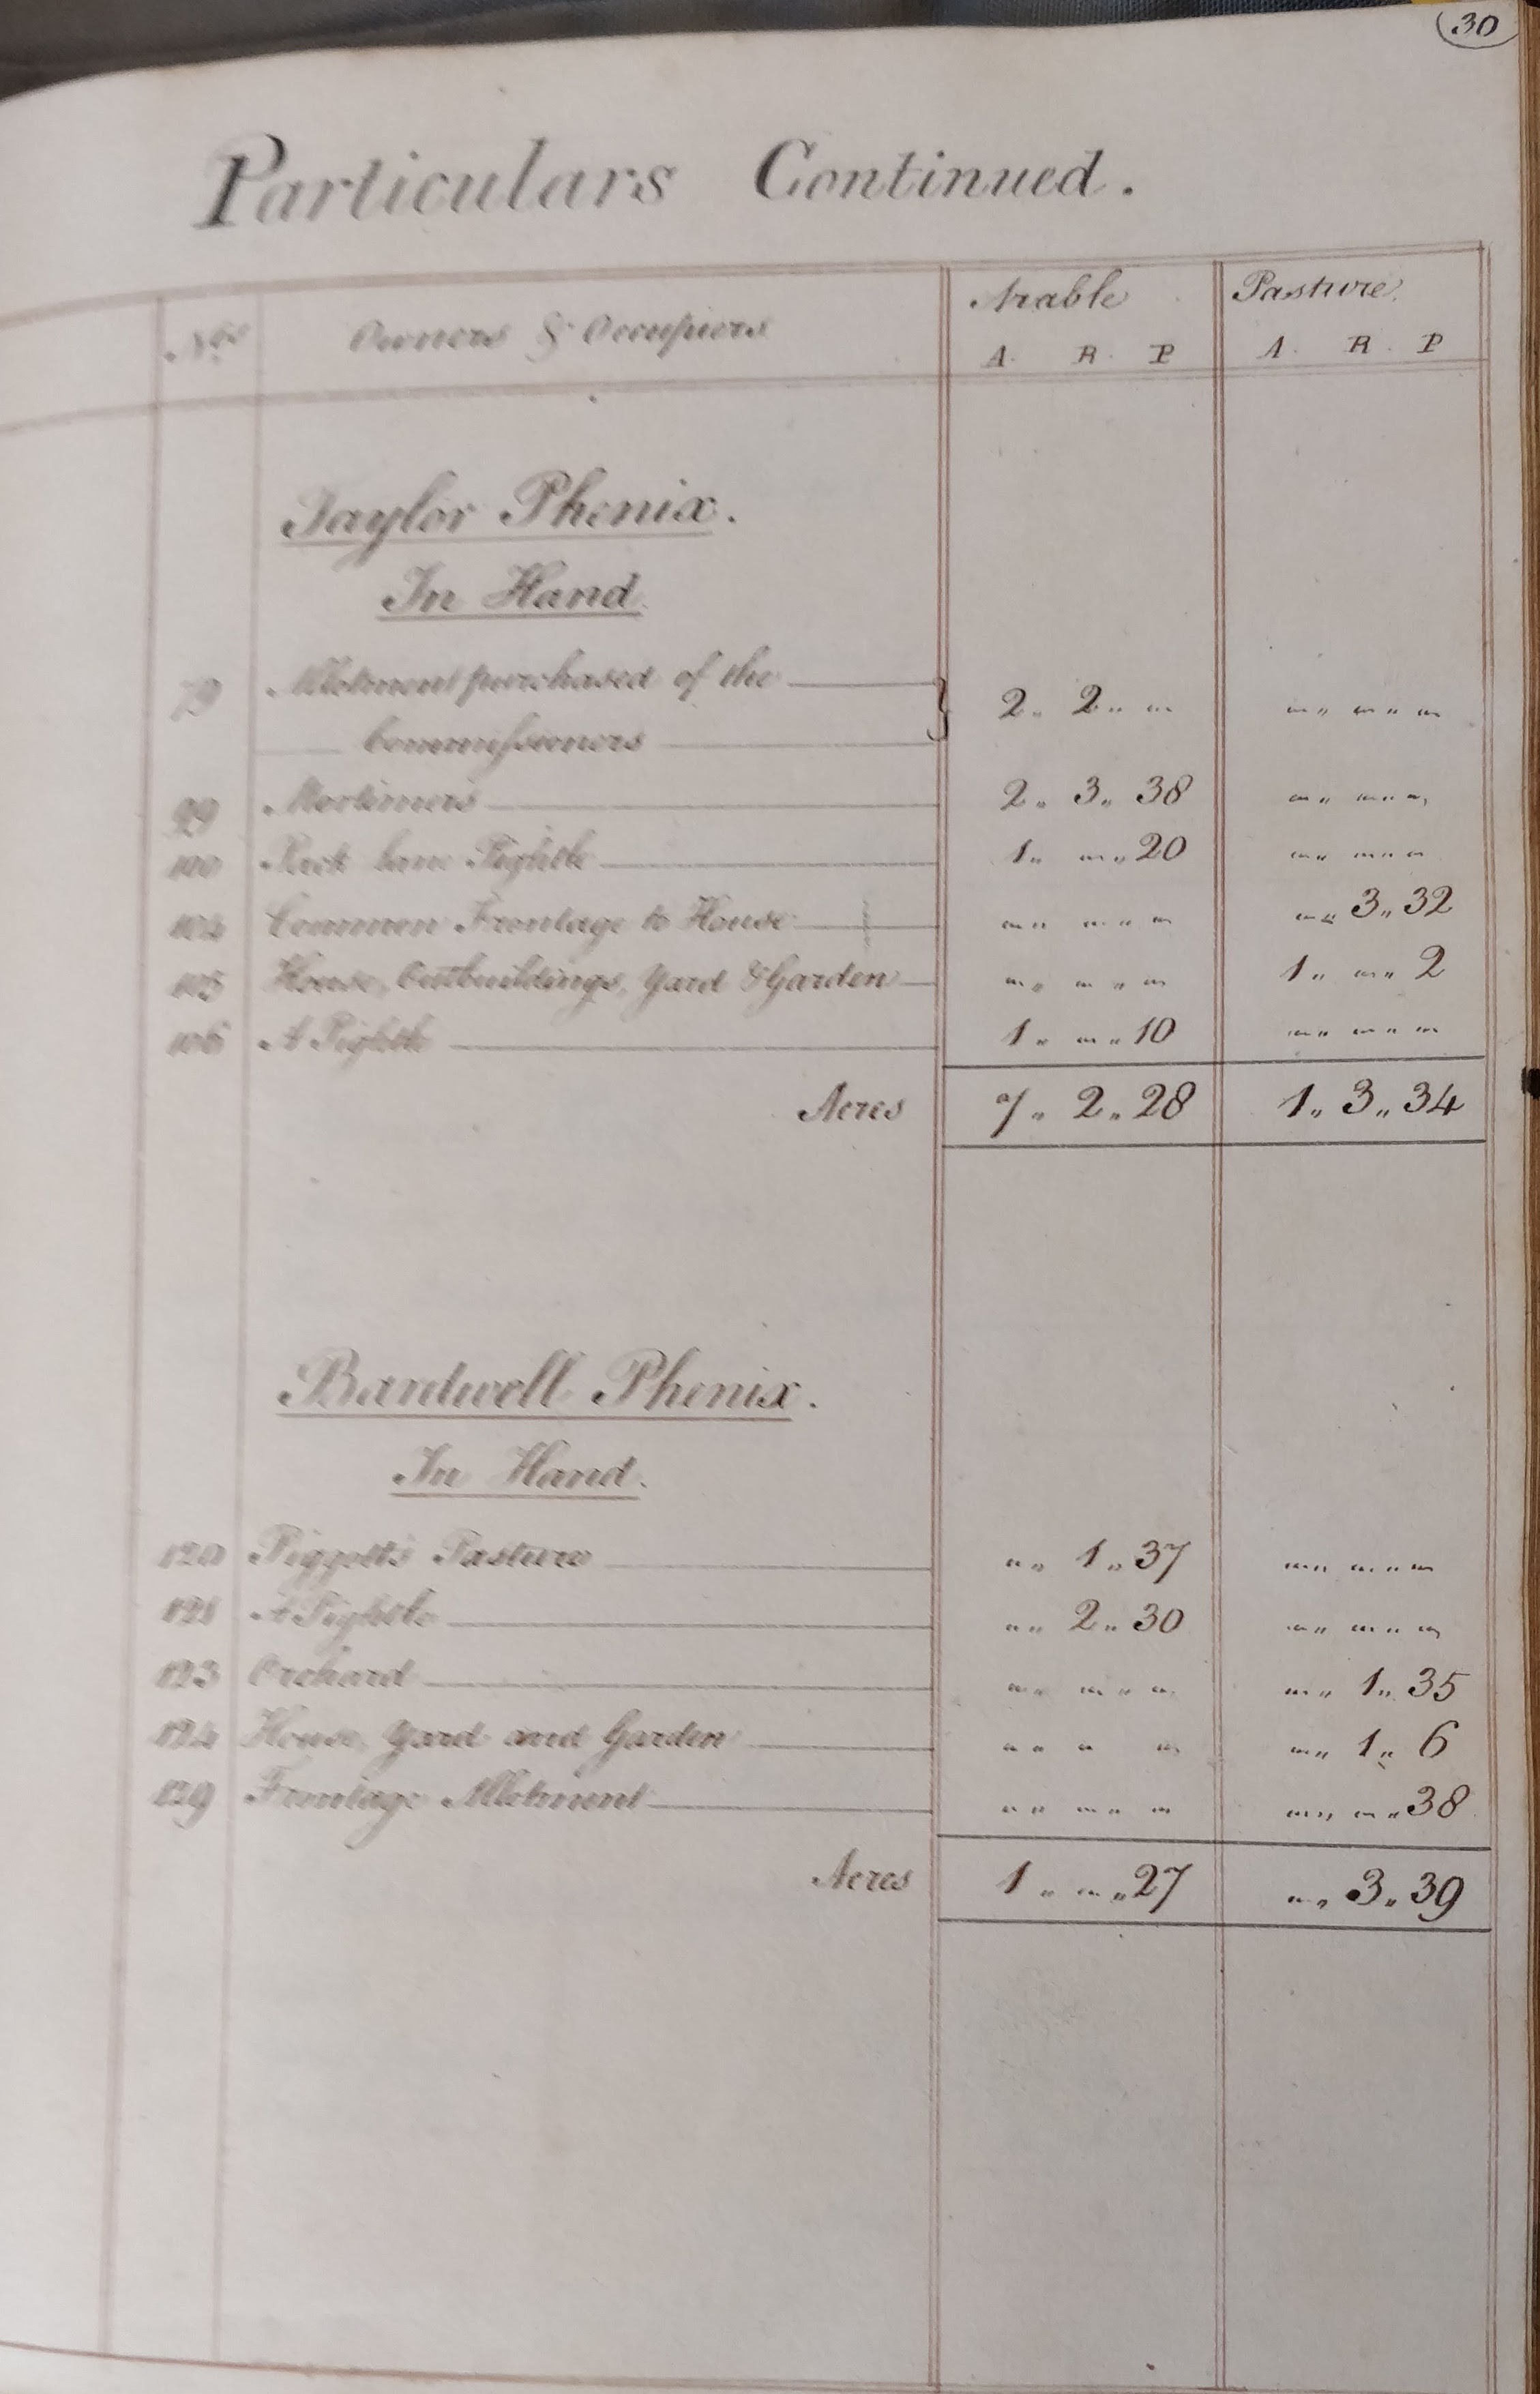 30
Particulars Continued.
Nos Owners & Occupiers Arable Pasture
A. R. P A. R. P
Taylor Phenix.
In Hand
79 Allotment purchased of the } 2 " 2 " " " " " " "
Commissioners
99 Mortimers 2 " 3 " 38 " " " " "
100 lane Pightle 1 " " " 20 " " " " "
104 Common Frontage to House " " " " " " " 3 " 32
105 House, Outbuildings, Yard & Garden " " " " " 1 " " " 2
106 A Pightle 1 " " " 10 " " " " "
Acres 7 " 2 " 28 1 " 3 " 34
Bardwell Phenix.
In Hand.
120 Piggott's Pasture " " 1 " 37 " " " " "
121 A Pightle " " 2 " 30 " " " " "
123 Orchard " " " " " " " 1 " 35
124 House, Yard and Garden " " " " " " 1 " 6
129 Frontage Allotment " " " " " " " " " 38
Acres 1 " " " 27 " " 3 " 39